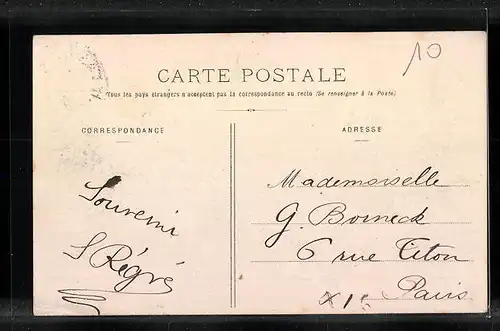 10
CARTE POSTALE
Tous les pays étrangers n'acceptent pas la correspondance au recto (Se renseigner à la Poste)
CORRESPONDANCE
ADRESSE
Souvenir
Mademoiselle
G. Borneck
6 rue Titon
Paris